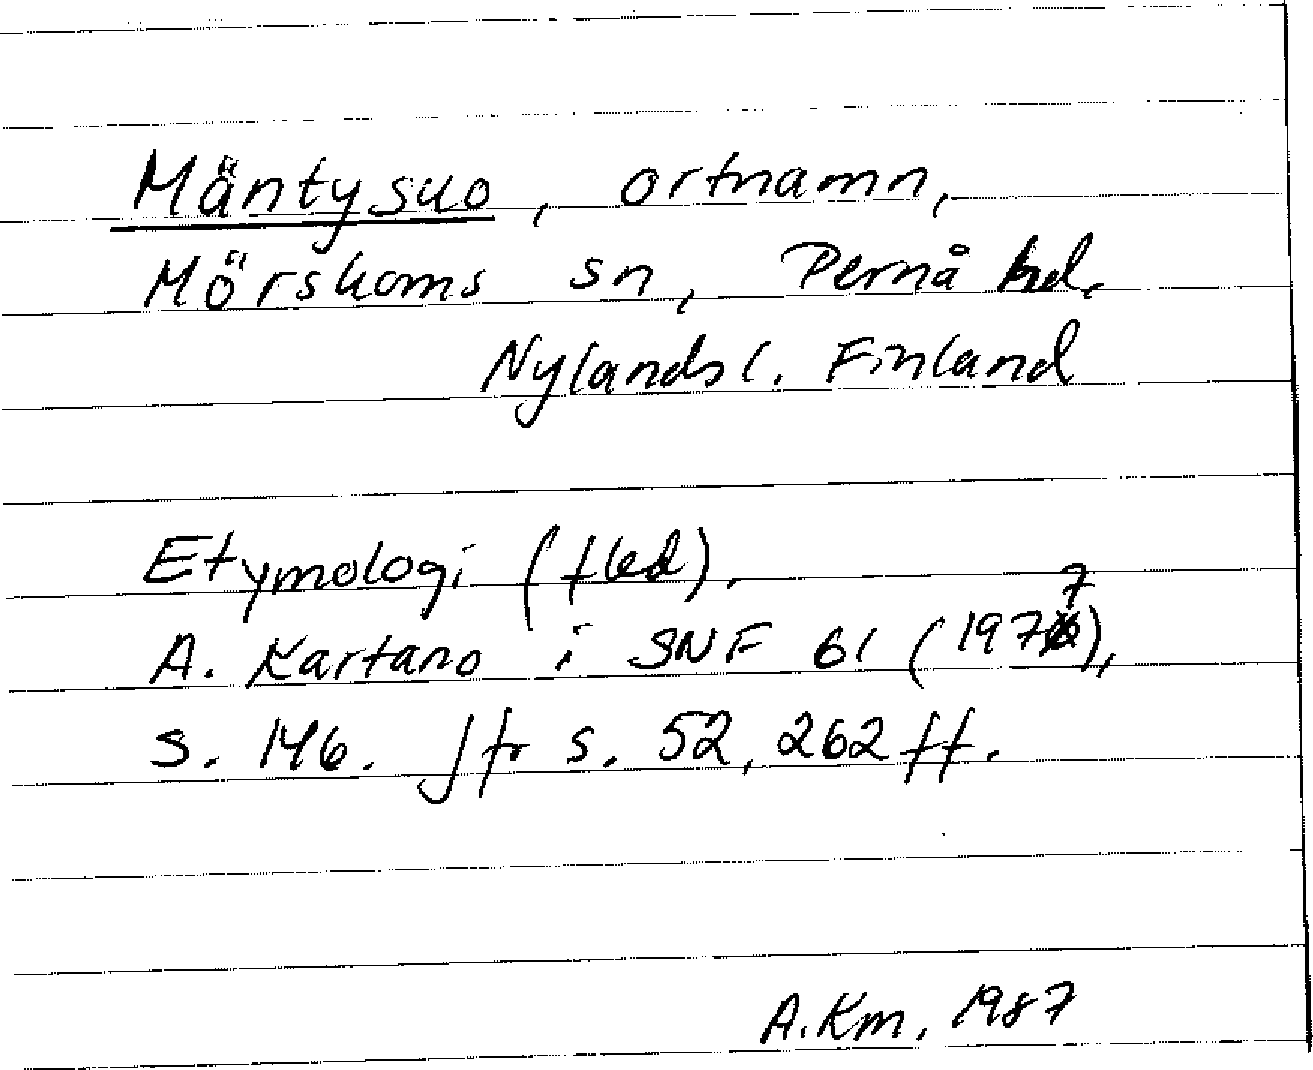 Mäntysuo, ortnamn,
Mörskoms sn, Pernå hd,
Nylands l. Finland
Etymologi (fled).
A. Kartano i SNF 61 (1977),
s. 146. Jfr s. 52, 262 ff.
A.Km. 1987